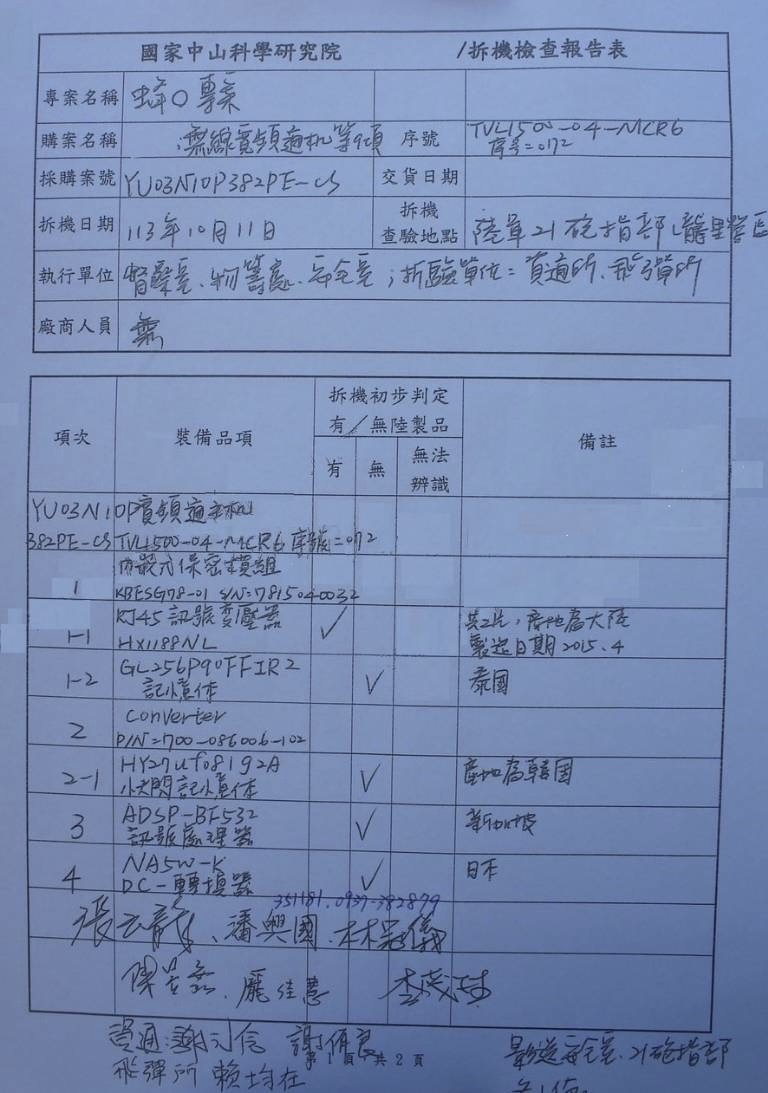 國家中山科學研究院 /拆機檢查報告表
專案名稱 蜂○專案
購案名稱 無線寬頻通机等9項 序號 TVL1500-04-MCR6
序号=0172
採購案號 YU03N10P382PE-CS 交貨日期
拆機日期 113年10月11日 拆機查驗地點 陸軍21砲指部(龍里營區
執行單位 督察室、物籌處、安全室;拆驗單位=資通所、飛弹所
廠商人員 無
項次 裝備品項 拆機初步判定 備註
有/無陸製品
有 無 無法辨識
YU03N10P 寬頻通主机
382PE-CS TVL1500-04-MCR6 序號=0172
1 內嵌式保密模組
KBESG78-01 S/N=781504-0032
1-1 RJ45 訊號变壓器 ✓ 共2片,產地為大陸
HX1188NL 製造日期2015.4
1-2 GL256P90FFIR2 ✓ 泰國
記憶体
2 Converter
P/N=700-086006-102
2-1 HY27UF08192A ✓ 產地為韓國
快閃記憶体
3 ADSP-BF532 ✓ 新加坡
訊號處理器
4 NA5W-K ✓ 日本
DC-轉換器
351181.0937-382879
潘興國
資通:謝
第 1 頁 共 2 頁
飛彈所 賴均在
安全室、21砲指部